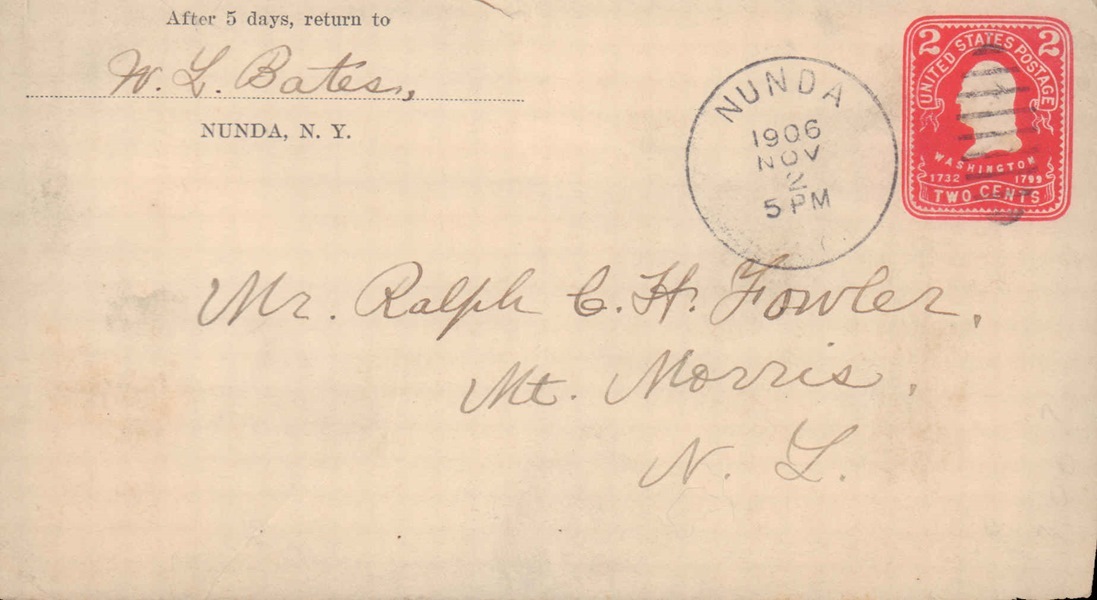 After 5 days, return to
W. L. Bates,
NUNDA, N. Y.
NUNDA
1906
NOV
2
5 PM
2 2
UNITED STATES POSTAGE
WASHINGTON
1732 1799
TWO CENTS
Mr. Ralph C. H. Fowler,
Mt. Morris,
N. L.